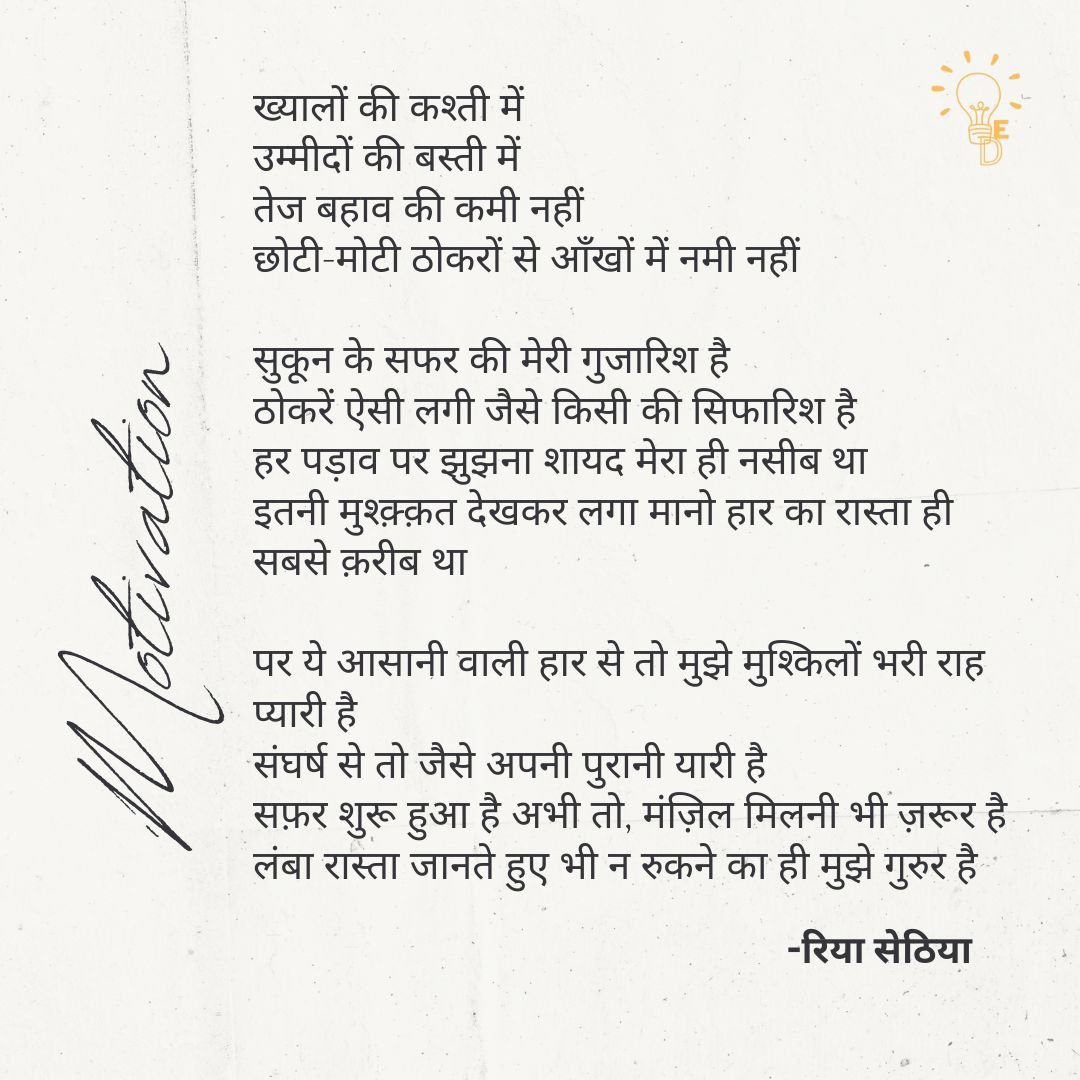 ख्यालों की कश्ती में
उम्मीदों की बस्ती में
तेज बहाव की कमी नहीं
छोटी-मोटी ठोकरों से आँखों में नमी नहीं
सुकून के सफर की मेरी गुजारिश है
ठोकरें ऐसी लगी जैसे किसी की सिफारिश है
हर पड़ाव पर झुझना शायद मेरा ही नसीब था
इतनी मुश्क़्क़त देखकर लगा मानो हार का रास्ता ही
सबसे क़रीब था
पर ये आसानी वाली हार से तो मुझे मुश्किलों भरी राह
प्यारी है
संघर्ष से तो जैसे अपनी पुरानी यारी है
सफ़र शुरू हुआ है अभी तो, मंज़िल मिलनी भी ज़रूर है
लंबा रास्ता जानते हुए भी न रुकने का ही मुझे गुरुर है
-रिया सेठिया
Motivation
E
D